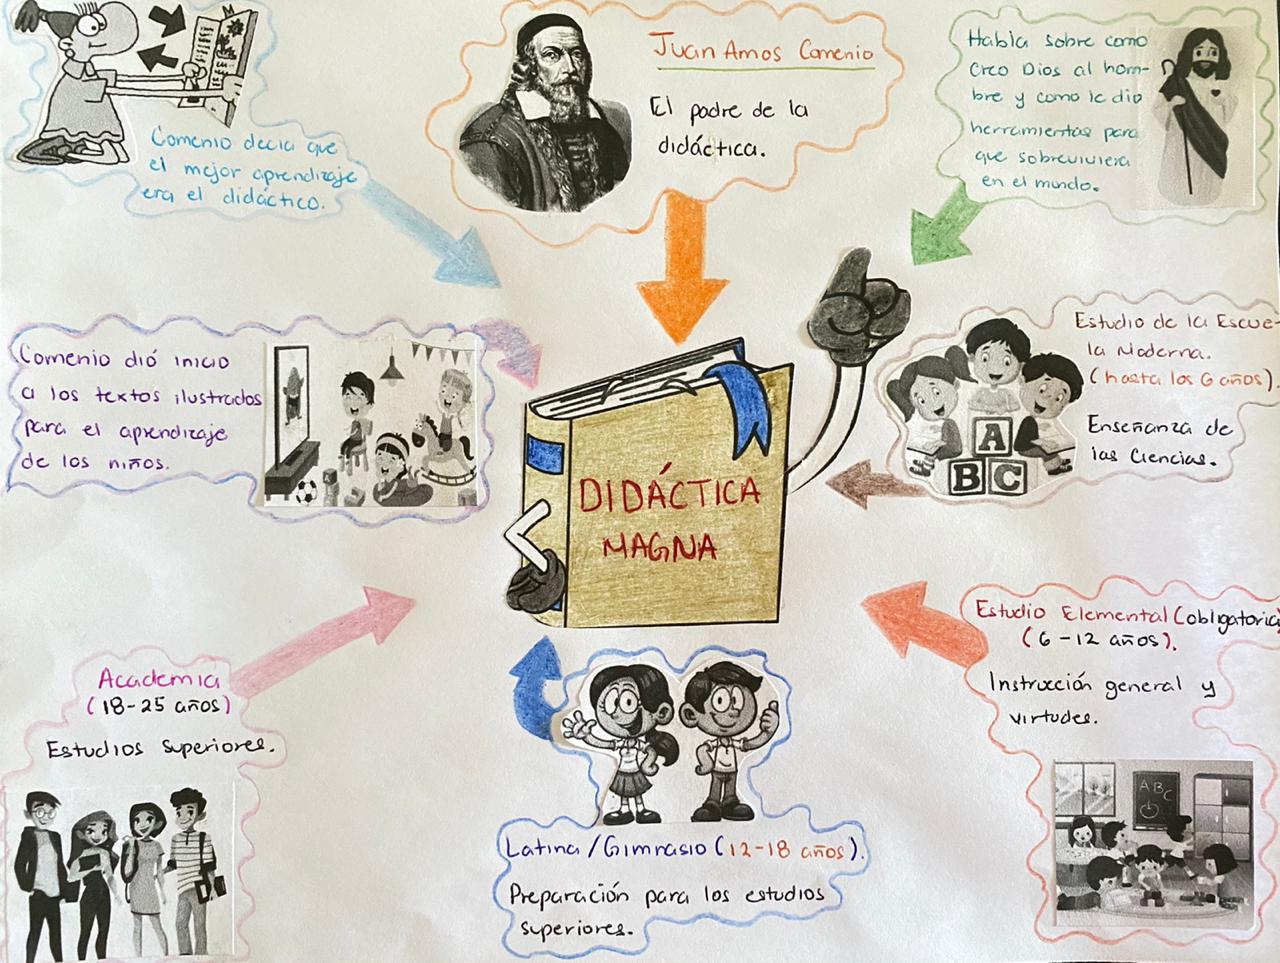 Comenio decía que
el mejor aprendizaje
era el didáctico.
Juan Amos Comenio
El padre de la
didáctica.
Habla sobre como
Creo Dios al hom-
bre y como le dio
herramientas para
que sobreviviera
en el mundo.
Comenio dió inicio
a los textos ilustrados
para el aprendizaje
de los niños.
DIDÁCTICA
MAGNA
Estudio de la Escue-
la Moderna.
(hasta los 6 años)
Enseñanza de
las Ciencias.
A
B C
Academia
(18-25 años)
Estudios Superiores.
Latina/Gimnasio (12-18 años).
Preparación para los estudios
superiores.
Estudio Elemental (obligatoria)
(6-12 años).
Instrucción general y
virtudes.
A B C